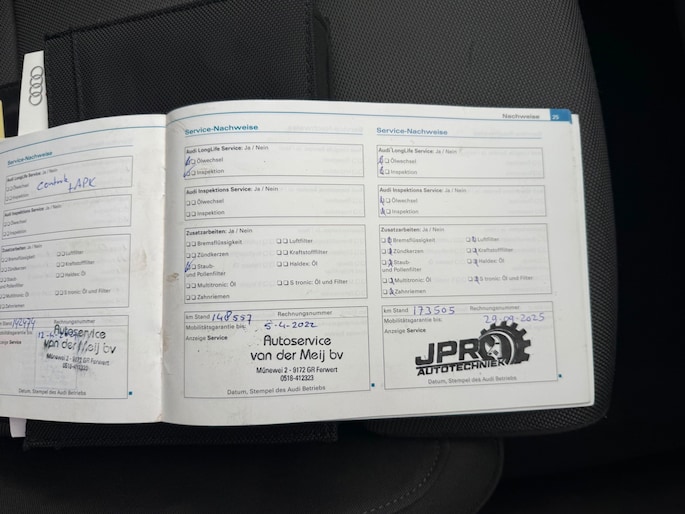 Service-Nachweise
Audi LongLife Service: Ja / Nein
Ölwechsel
Inspektion
Controle + APK
Audi Inspektions Service: Ja / Nein
Ölwechsel
Inspektion
Zusatzarbeiten: Ja / Nein
Bremsflüssigkeit
Luftfilter
Zündkerzen
Kraftstofffilter
Staub-
und Pollenfilter
Haldex: Öl
Multitronic: Öl
S tronic: Öl und Filter
Zahnriemen
km Stand
Rechnungsnummer
Mobilitätsgarantie bis:
Anzeige Service
Autoservice
van der Meij bv
Münewei 2 - 9172 GR Ferwert
0518-412323
Datum, Stempel des Audi Betriebs
Service-Nachweise
Audi LongLife Service: Ja / Nein
Ölwechsel
Inspektion
Audi Inspektions Service: Ja / Nein
Ölwechsel
Inspektion
Zusatzarbeiten: Ja / Nein
Bremsflüssigkeit
Luftfilter
Zündkerzen
Kraftstofffilter
Staub-
und Pollenfilter
Haldex: Öl
Multitronic: Öl
S tronic: Öl und Filter
Zahnriemen
km Stand 148557 Rechnungsnummer
Mobilitätsgarantie bis: 5-4-2022
Anzeige Service
Autoservice
van der Meij bv
Münewei 2 - 9172 GR Ferwert
0518-412323
Datum, Stempel des Audi Betriebs
Nachweise 25
Service-Nachweise
Audi LongLife Service: Ja / Nein
Ölwechsel
Inspektion
Audi Inspektions Service: Ja / Nein
Ölwechsel
Inspektion
Zusatzarbeiten: Ja / Nein
Bremsflüssigkeit
Luftfilter
Zündkerzen
Kraftstofffilter
Staub-
und Pollenfilter
Haldex: Öl
Multitronic: Öl
S tronic: Öl und Filter
Zahnriemen
km Stand 173505 Rechnungsnummer
Mobilitätsgarantie bis: 29-09-2025
Anzeige Service
JPR
AUTOTECHNIEK
Datum, Stempel des Audi Betriebs